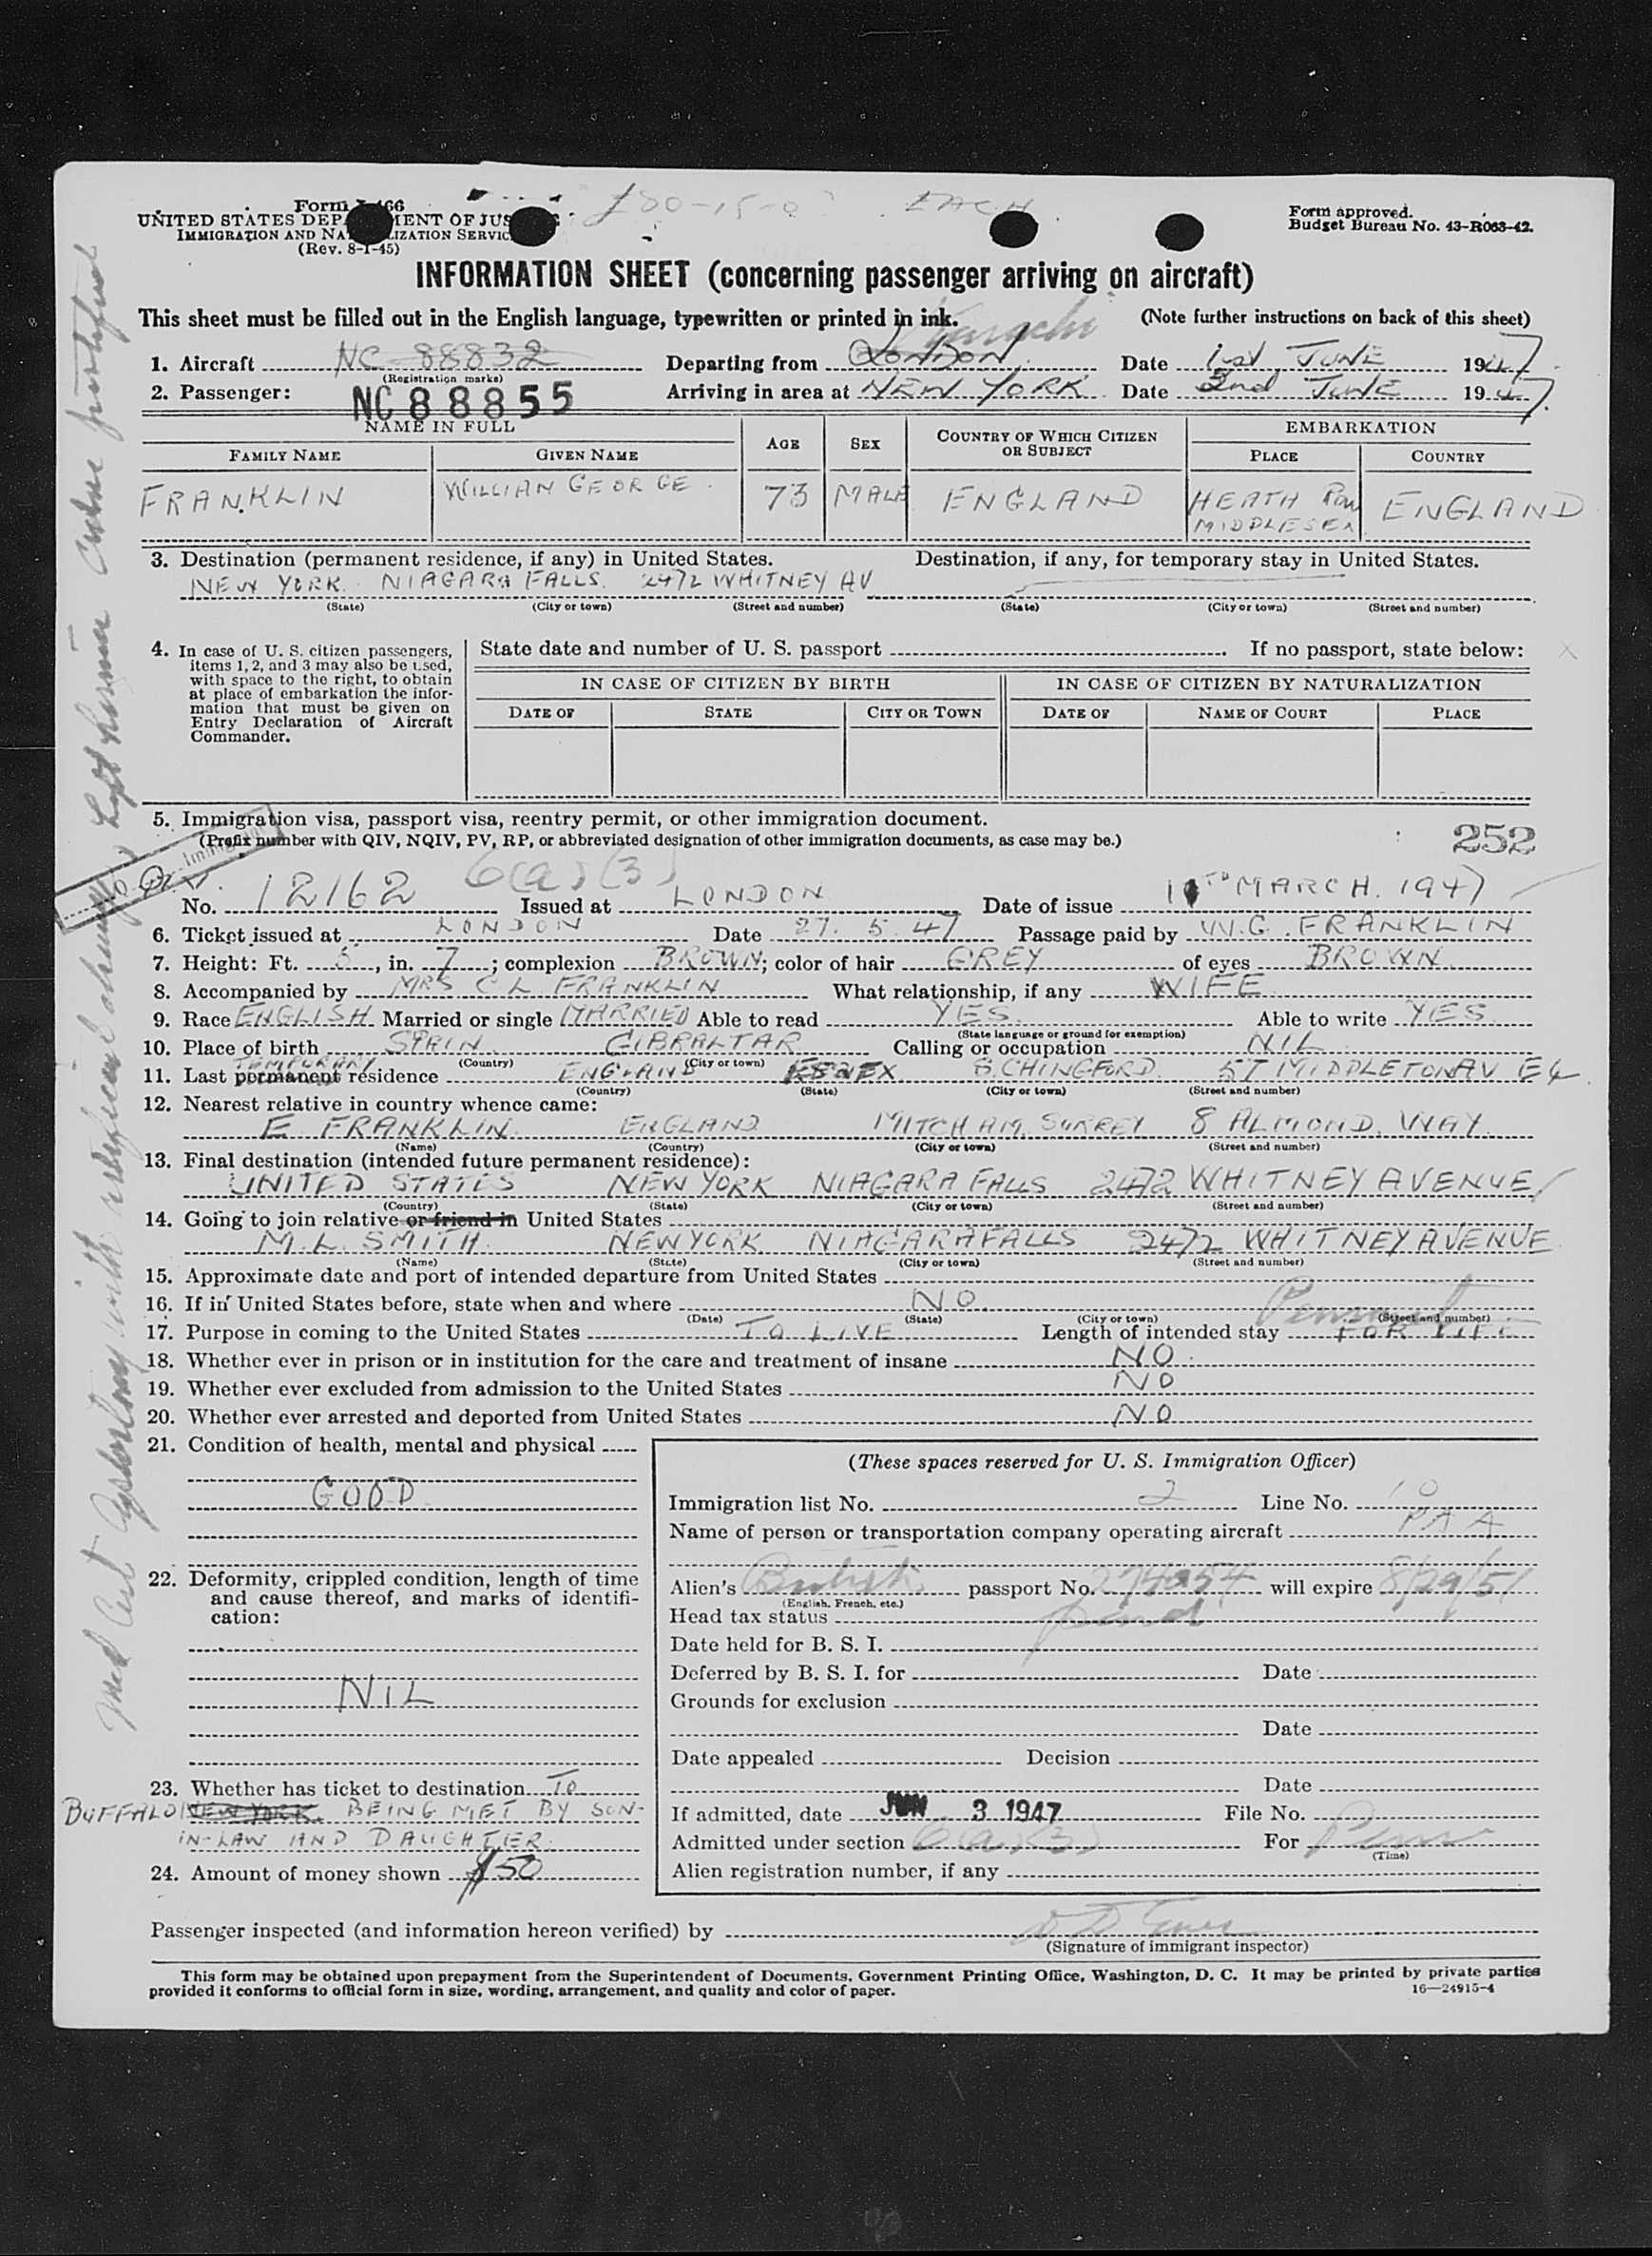 £80-15-0 EACH
Form 466
UNITED STATES DEP MENT OF JUS
IMMIGRATION AND NA LIZATION SERVIC
(Rev. 8-1-45)
Form approved.
Budget Bureau No. 43-R063-42.
INFORMATION SHEET (concerning passenger arriving on aircraft)
This sheet must be filled out in the English language, typewritten or printed in ink. (Note further instructions on back of this sheet)
1. Aircraft NC 88832 Departing from LONDON Date 1st JUNE 1947
(Registration marks)
2. Passenger: NC 88855 Arriving in area at NEW YORK Date 2nd JUNE 1947.
NAME IN FULL AGE SEX COUNTRY OF WHICH CITIZEN OR SUBJECT EMBARKATION
FAMILY NAME GIVEN NAME PLACE COUNTRY
FRANKLIN WILLIAM GEORGE. 73 MALE ENGLAND HEATH ROW MIDDLESEX ENGLAND
3. Destination (permanent residence, if any) in United States. Destination, if any, for temporary stay in United States.
NEW YORK. NIAGARA FALLS. 2472 WHITNEY AV
(State) (City or town) (Street and number) (State) (City or town) (Street and number)
4. In case of U. S. citizen passengers, items 1, 2, and 3 may also be used, with space to the right, to obtain at place of embarkation the information that must be given on Entry Declaration of Aircraft Commander.
State date and number of U. S. passport If no passport, state below:
IN CASE OF CITIZEN BY BIRTH IN CASE OF CITIZEN BY NATURALIZATION
DATE OF STATE CITY OR TOWN DATE OF NAME OF COURT PLACE
5. Immigration visa, passport visa, reentry permit, or other immigration document.
(Prefix number with QIV, NQIV, PV, RP, or abbreviated designation of other immigration documents, as case may be.) 252
6(a)(3)
No. 12162 Issued at LONDON Date of issue MARCH. 1947
6. Ticket issued at LONDON Date 27. 5. 47 Passage paid by W.G. FRANKLIN
7. Height: Ft. 5, in. 7; complexion BROWN; color of hair GREY of eyes BROWN
8. Accompanied by MRS C L FRANKLIN What relationship, if any WIFE
9. Race ENGLISH Married or single MARRIED Able to read YES. Able to write YES
(State language or ground for exemption)
10. Place of birth SPAIN GIBRALTAR Calling or occupation NIL
(Country) (City or town)
TEMPORARY
11. Last permanent residence ENGLAND ESSEX CHINGFORD. 57 MIDDLETON AV E4
(Country) (State) (City or town) (Street and number)
12. Nearest relative in country whence came:
E FRANKLIN. ENGLAND MITCHAM. SURREY 8 ALMOND. WAY.
(Name) (Country) (City or town) (Street and number)
13. Final destination (intended future permanent residence):
UNITED STATES NEW YORK NIAGARA FALLS 2472 WHITNEY AVENUE
(Country) (State) (City or town) (Street and number)
14. Going to join relative or friend in United States
M.L. SMITH. NEW YORK NIAGARA FALLS 2472 WHITNEY AVENUE
(Name) (State) (City or town) (Street and number)
15. Approximate date and port of intended departure from United States
16. If in United States before, state when and where NO.
(Date) (State) (City or town) (Street and number)
17. Purpose in coming to the United States TO LIVE Length of intended stay FOR LIFE
18. Whether ever in prison or in institution for the care and treatment of insane NO.
19. Whether ever excluded from admission to the United States NO
20. Whether ever arrested and deported from United States NO
21. Condition of health, mental and physical
GOOD
22. Deformity, crippled condition, length of time and cause thereof, and marks of identification:
NIL
23. Whether has ticket to destination TO
BUFFALO NEW YORK. BEING MET BY SON-
IN-LAW AND DAUGHTER.
24. Amount of money shown $50
(These spaces reserved for U. S. Immigration Officer)
Immigration list No. 2 Line No. 10
Name of person or transportation company operating aircraft PAA
Alien's British passport No. 274054 will expire 8/29/51
(English, French, etc.)
Head tax status paid
Date held for B. S. I.
Deferred by B. S. I. for Date
Grounds for exclusion
Date
Date appealed Decision
Date
If admitted, date JUN 3 1947 File No.
Admitted under section 6(a)(3) For Perm
(Time)
Alien registration number, if any
Passenger inspected (and information hereon verified) by
(Signature of immigrant inspector)
This form may be obtained upon prepayment from the Superintendent of Documents, Government Printing Office, Washington, D. C. It may be printed by private parties
provided it conforms to official form in size, wording, arrangement, and quality and color of paper. 16—24915-4